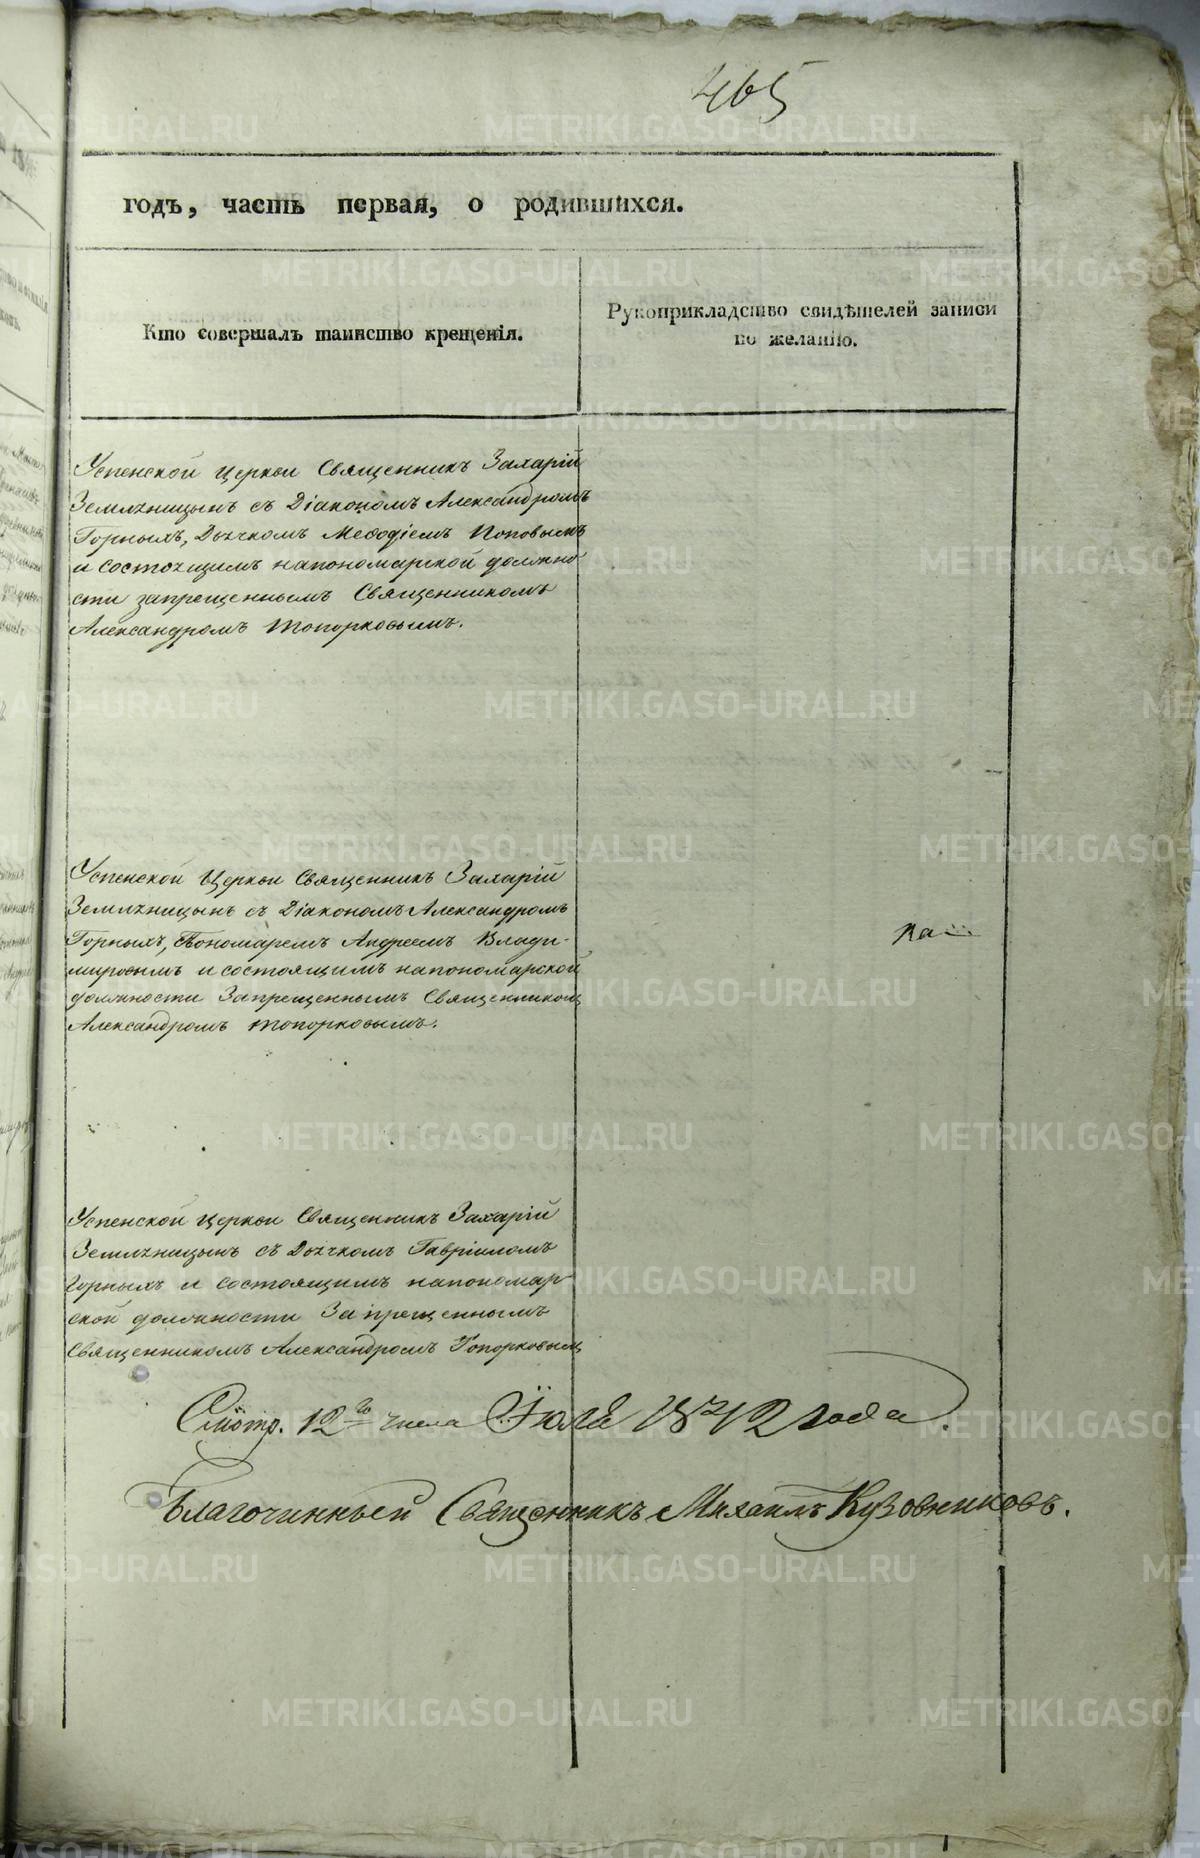 465
годъ, часть первая, о родившихся.
Кто совершалъ таинство крещенія.
Рукоприкладство свидѣтелей записи
по желанію.
Успенской церкви Священникъ Захарій
Земляницынъ съ Діакономъ Александромъ
Горныхъ, Дьячкомъ Меѳодіемъ Поповымъ
и состоящимъ напономарской должно
сти запрещеннымъ Священникомъ
Александромъ Топорковымъ.
Успенской Церкви Священникъ Захарій
Земляницынъ съ Діакономъ Александромъ
Горныхъ, Пономаремъ Андреемъ Влади-
мировымъ и состоящимъ напономарской
должности Запрещеннымъ Священникомъ
Александромъ Топорковымъ.
Успенской церкви Священникъ Захарій
Земляницынъ съ Дьячкомъ Гавріиломъ
Горныхъ и состоящимъ напономар-
ской должности Запрещеннымъ
Священникомъ Александромъ Топорковымъ
Смотр. 12го числа Іюля 1842 года.
Благочинный Священникъ Михаилъ Кузовниковъ.
METRIKI.GASO-URAL.RU